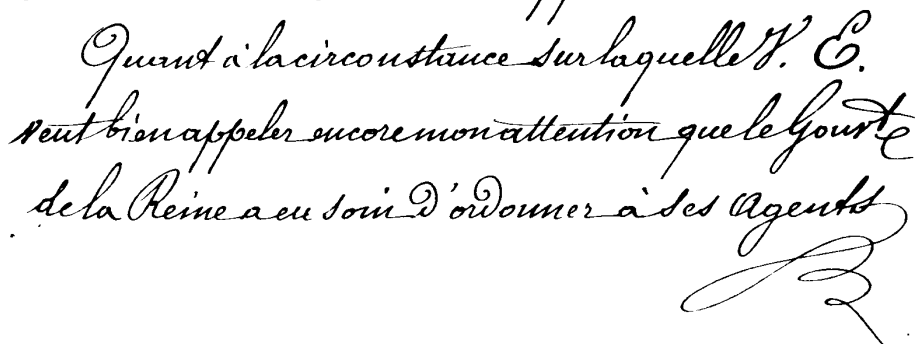 Quant à la circonstance sur laquelle V. E.
veut bien appeler encore mon attention que le Gouvt
de la Reine a eu soin d'ordonner à ses Agents